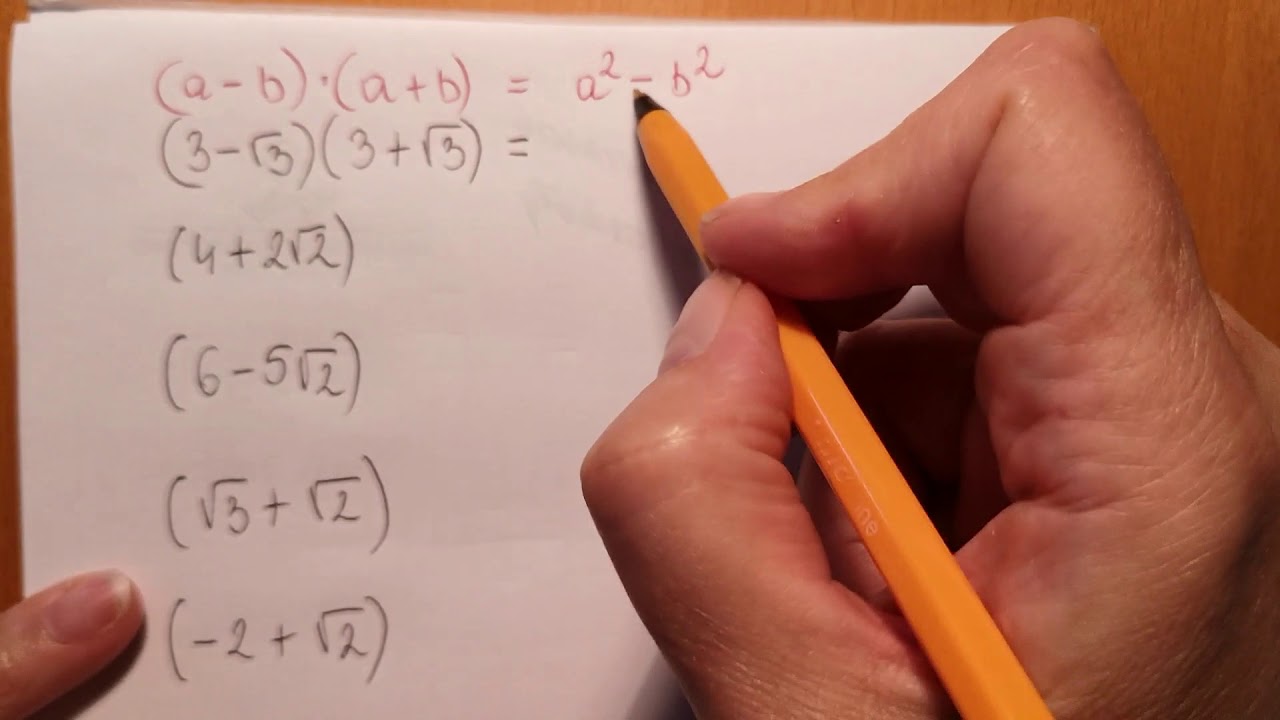 (a - b) · (a + b) = a² - b²
(3 - √3)(3 + √3) =
(4 + 2√2)
(6 - 5√2)
(√3 + √2)
(-2 + √2)